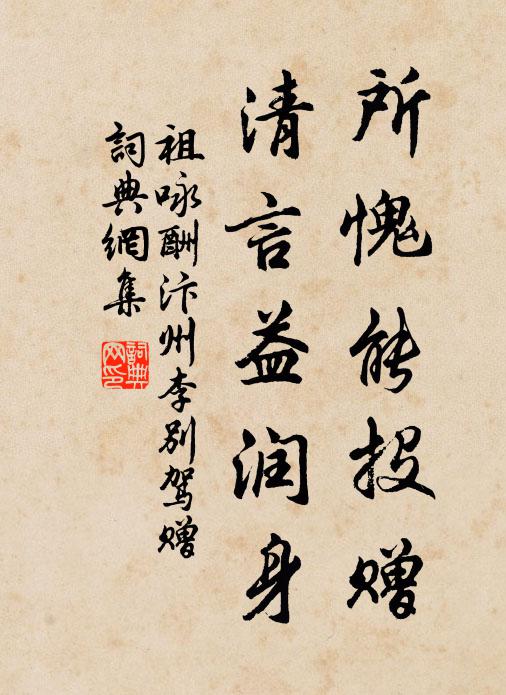 所愧能投赠
清言益润身
祖咏酬汴州李别驾赠
詞典網集
詞典網印